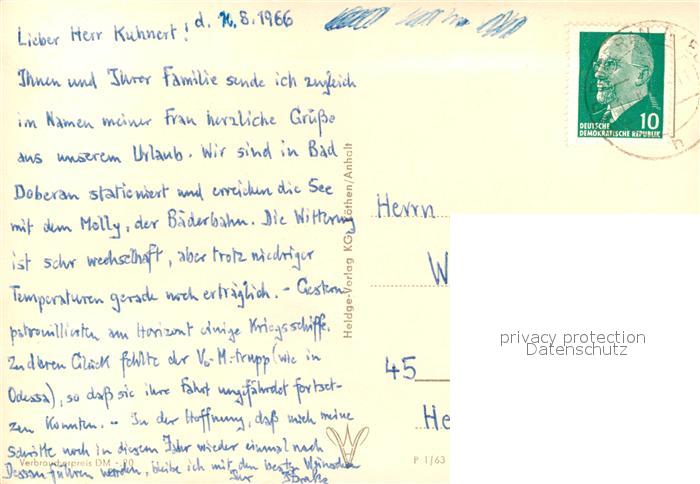 d. 8.1966
Lieber Herr Kuhnert!
Ihnen und Ihrer Familie sende ich zugleich
im Namen meiner Frau herzliche Grüße
aus unserem Urlaub. Wir sind in Bad
Doberan stationiert und erreichen die See
mit dem Molly, der Bäderbahn. Die Witterung
ist sehr wechselhaft, aber trotz niedriger
Temperaturen gerade noch erträglich. – Gestern
patrouillierten am Horizont einige Kriegsschiffe.
Zu deren Glück fehlte der V.-M.-Trupp (wie in
Odessa), so daß sie ihre Fahrt ungefährdet fortset-
zen konnten. – In der Hoffnung, daß mich meine
Schritte noch in diesem Jahr wieder einmal nach
Dessau führen werden, bleibe ich mit den besten Wünschen
Ihr
Verbraucherpreis DM -,20
Heldge-Verlag KG, Köthen/Anhalt
P 1/63
10
DEUTSCHE
DEMOKRATISCHE REPUBLIK
Herrn
W
45
He
privacy protection
Datenschutz